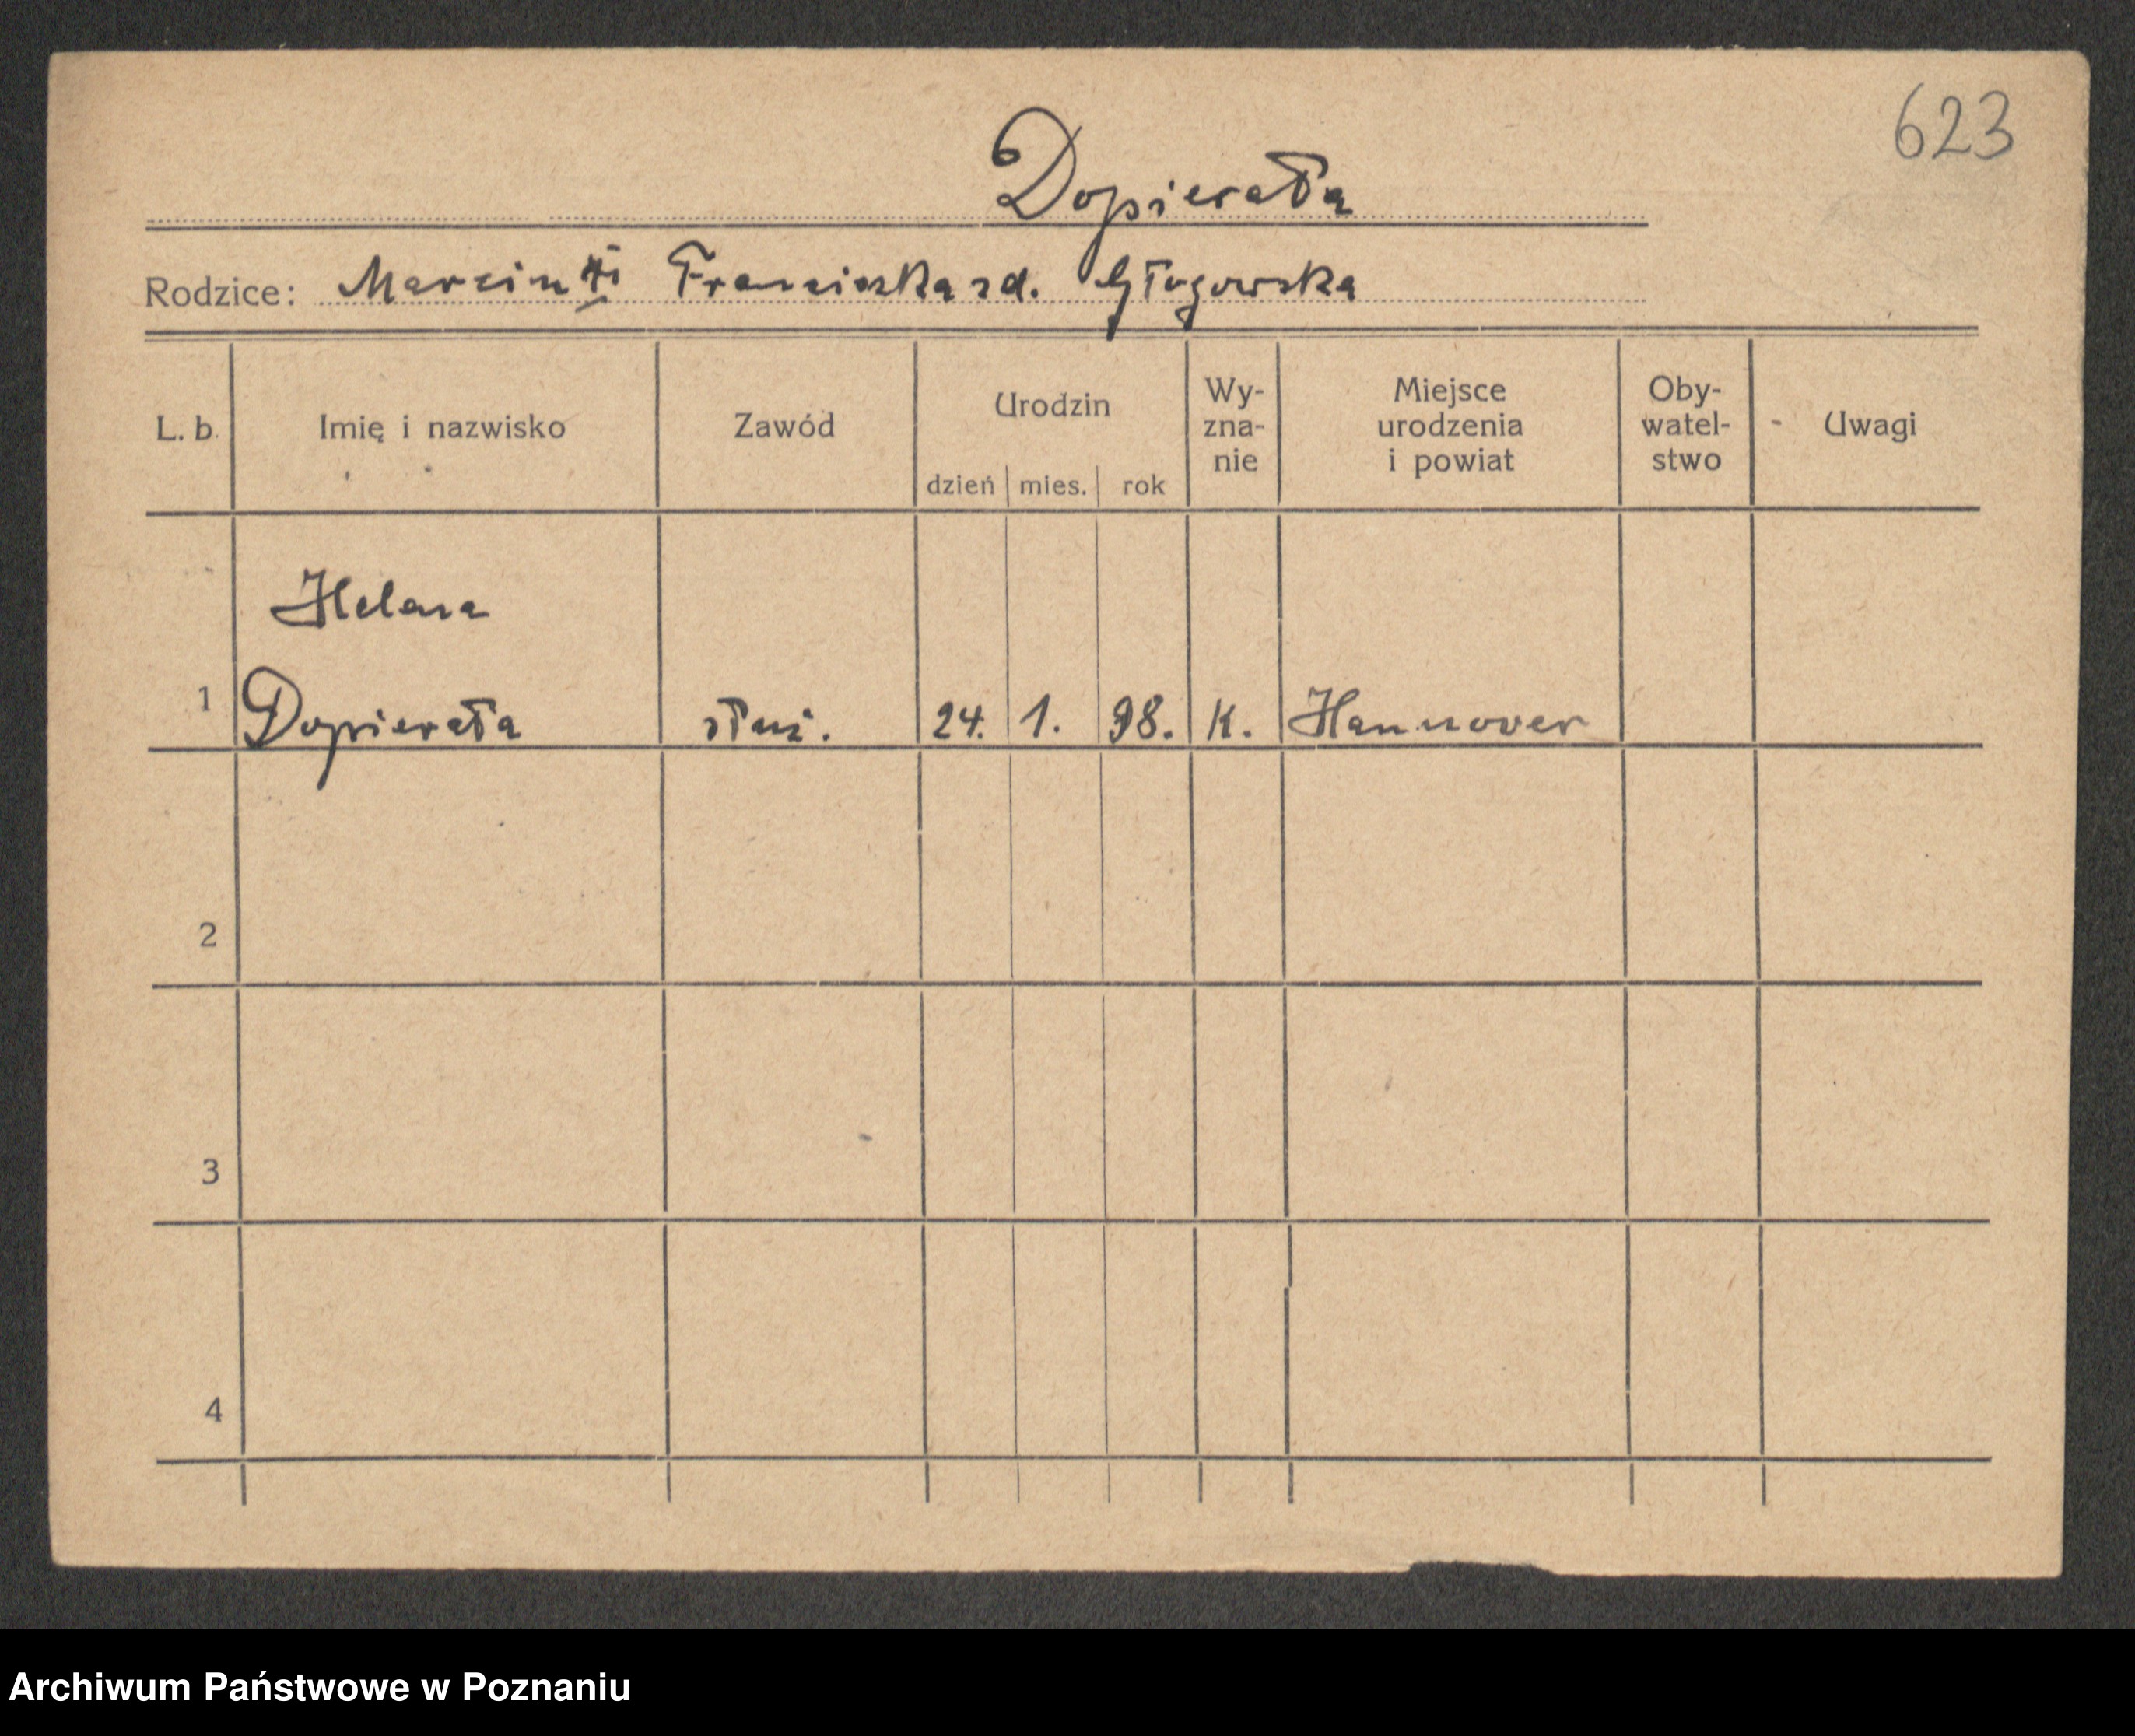 623
Dopierała
Rodzice: Marcin i Franciszka zd. Głogowska
L. b. Imię i nazwisko Zawód Urodzin dzień mies. rok Wy- zna- nie Miejsce urodzenia i powiat Oby- watel- stwo Uwagi
Helena
1 Dopierała służ. 24. 1. 98. K. Hannover
2
3
4
Archiwum Państwowe w Poznaniu